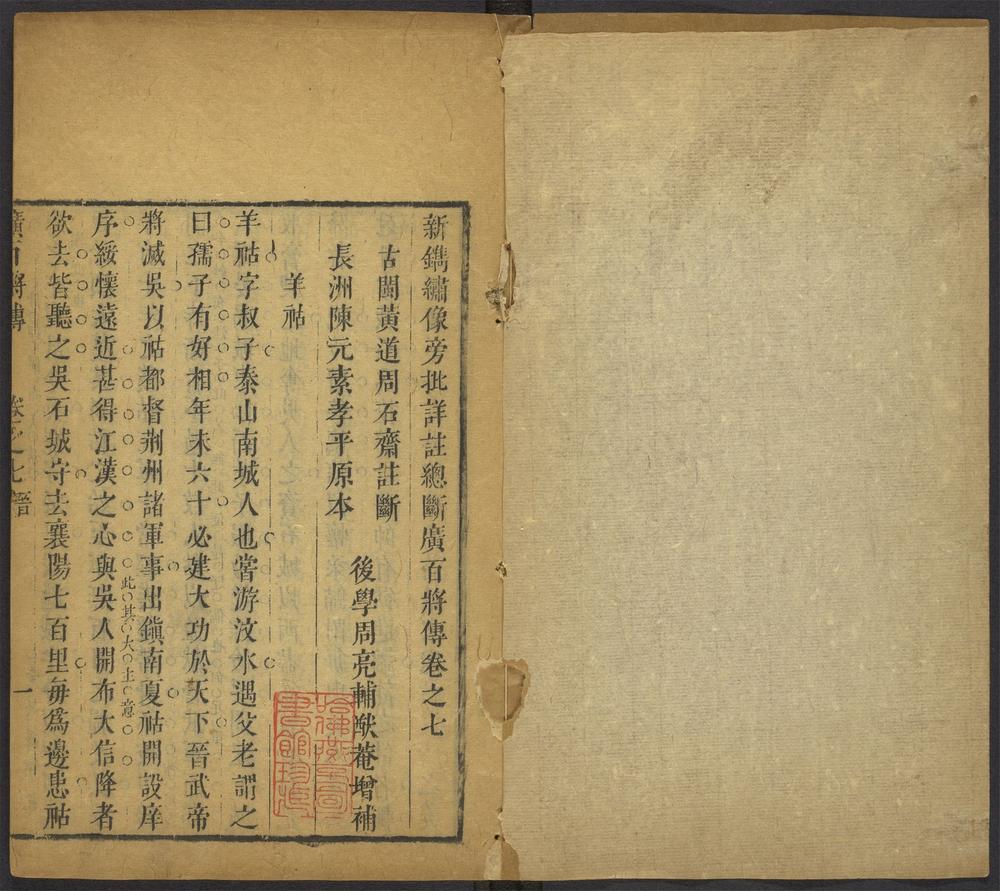 新鐫繡像旁批詳註總斷廣百將傳卷之七
古閩黃道周石齋註斷
長洲陳元素孝平原本
後學周亮輔猷菴增補
羊祜
羊祜字叔子泰山南城人也嘗游汶水遇父老謂之
曰孺子有好相年未六十必建大功於天下晉武帝
將滅吳以祜都督荆州諸軍事出鎮南夏祜開設庠
此其大主意
序綏懷遠近甚得江漢之心與吳人開布大信降者
欲去皆聽之吳石城守去襄陽七百里每為邊患祜
廣百將傳 卷之七 晉 一
哈佛燕京圖書館珍藏